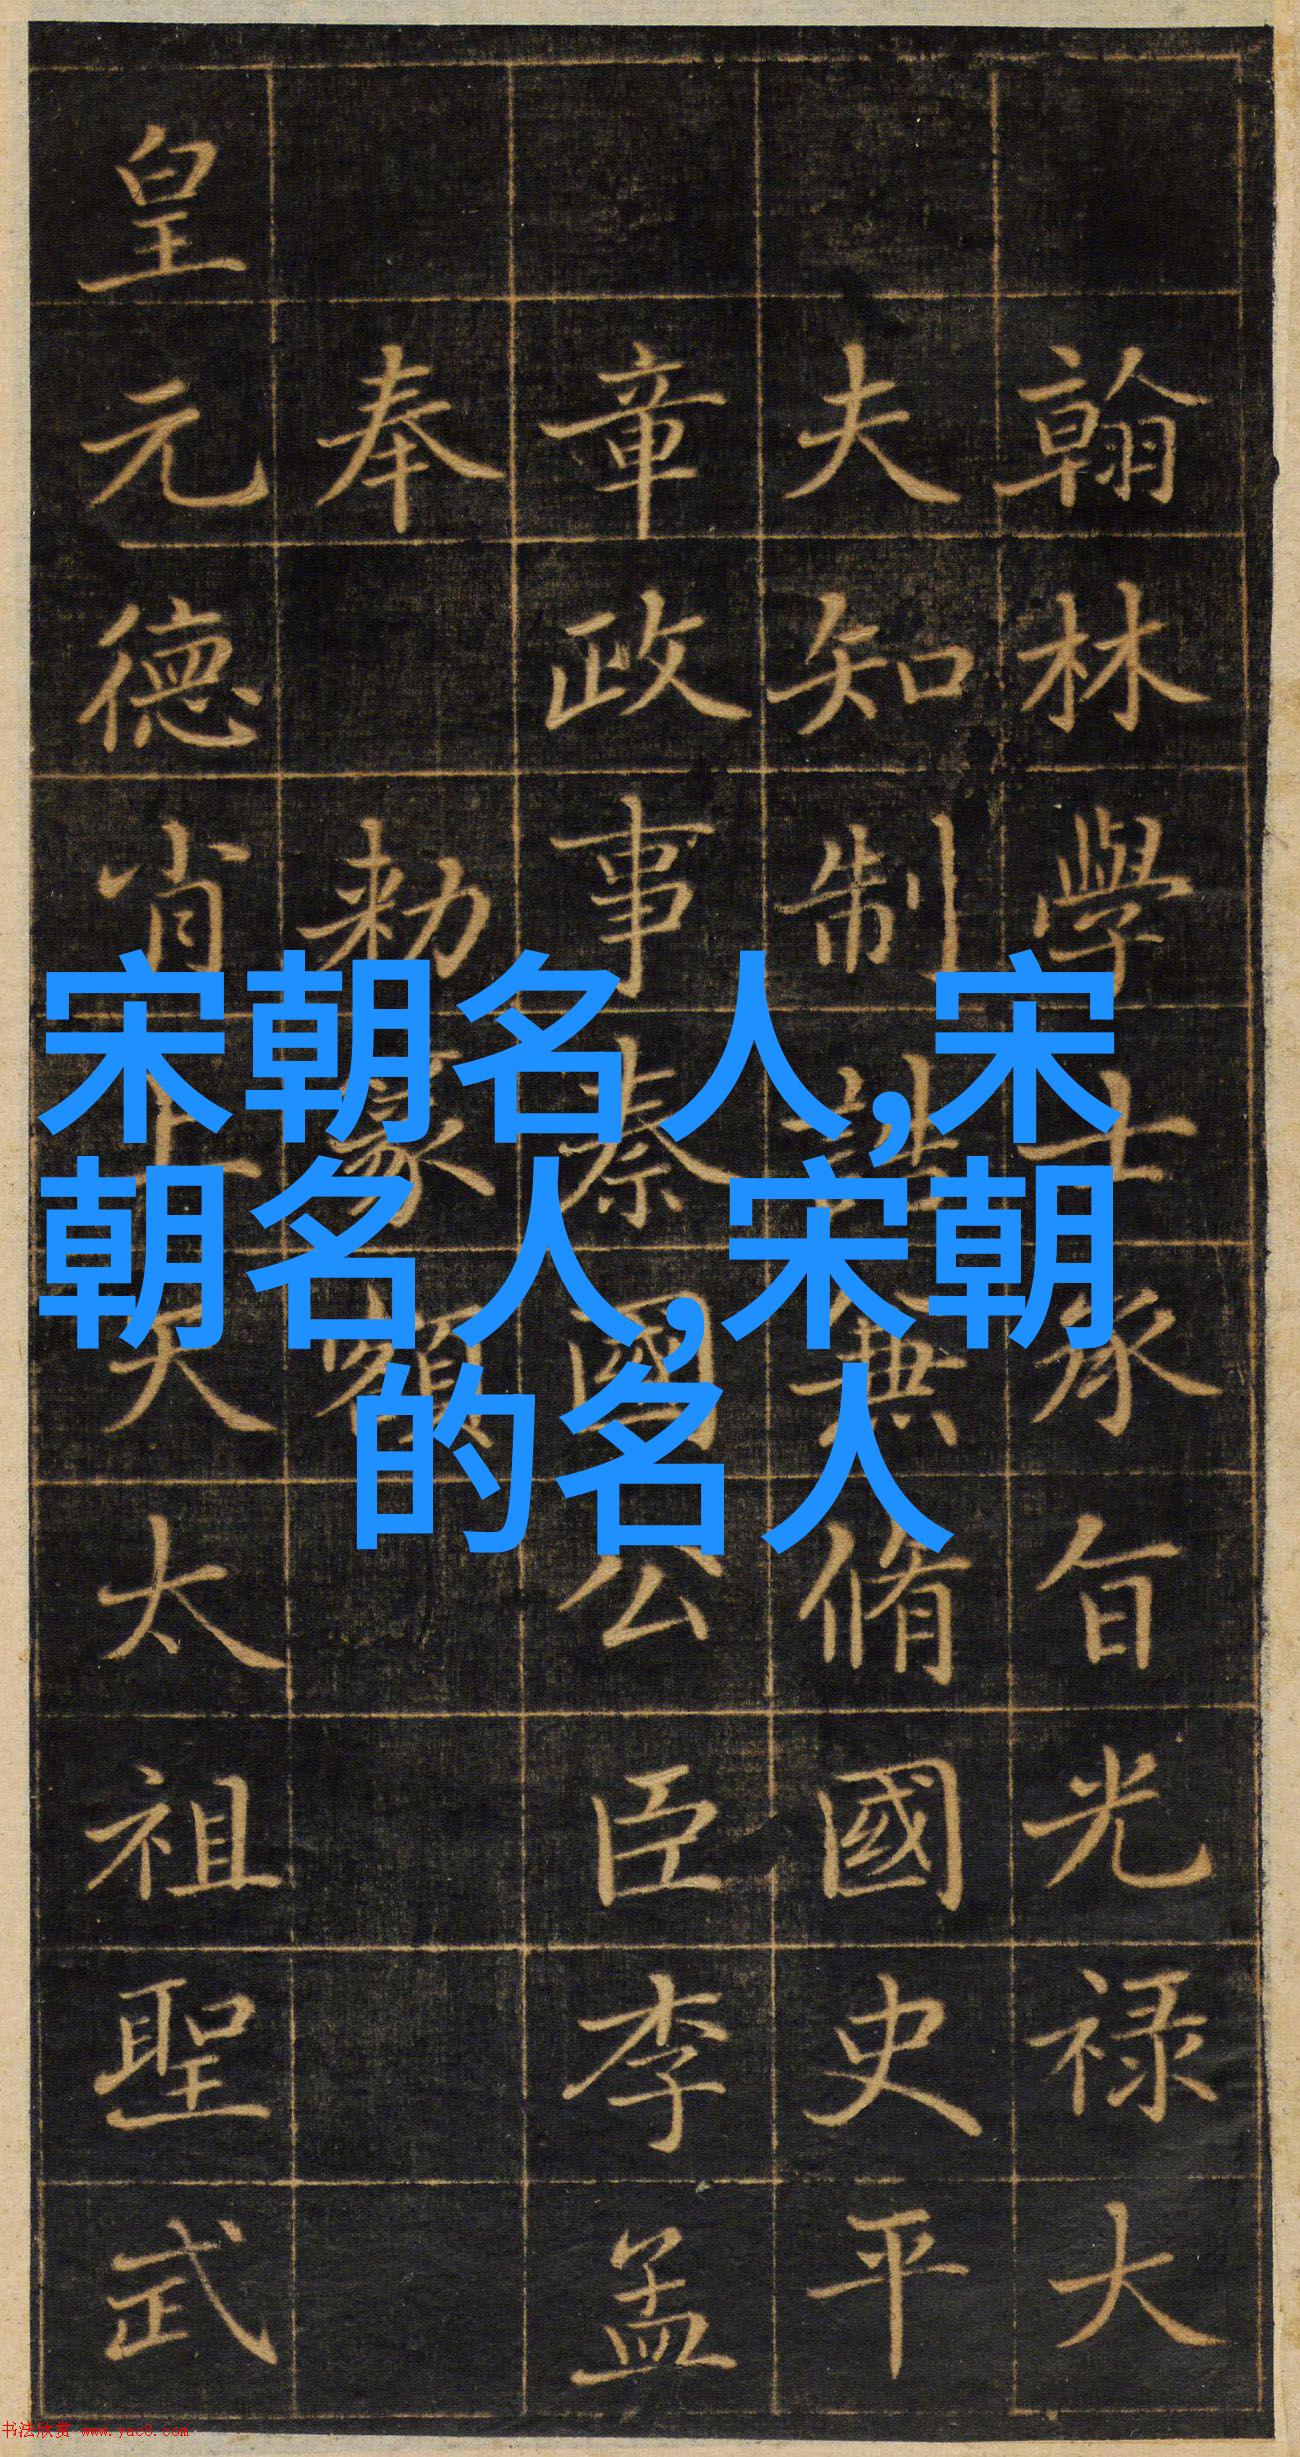 翰林學士承旨光禄大
夫知制誥兼脩國史平
章政事秦國公臣李孟
奉勑篆額
皇元德肖上天太祖聖武
宋朝名人,宋
朝名人,宋朝
的名人
书法欣赏 www.yac8.com